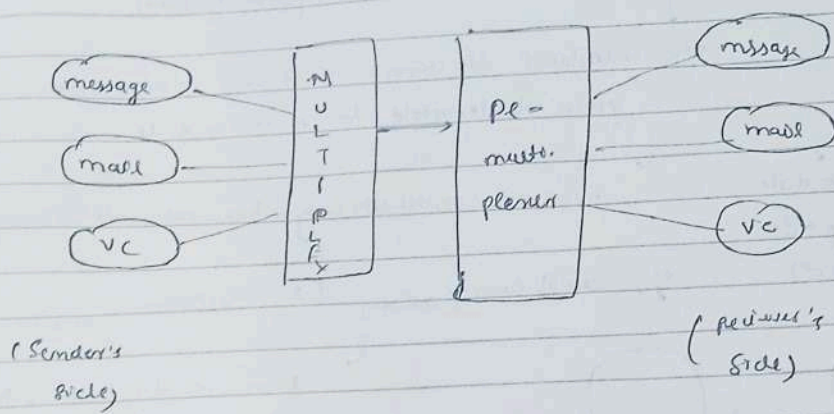 message
mail
VC
MULTIPLFY
De-
multi.
plexer
mssage
mail
VC
(Sender's
side)
(Reciever's
side)